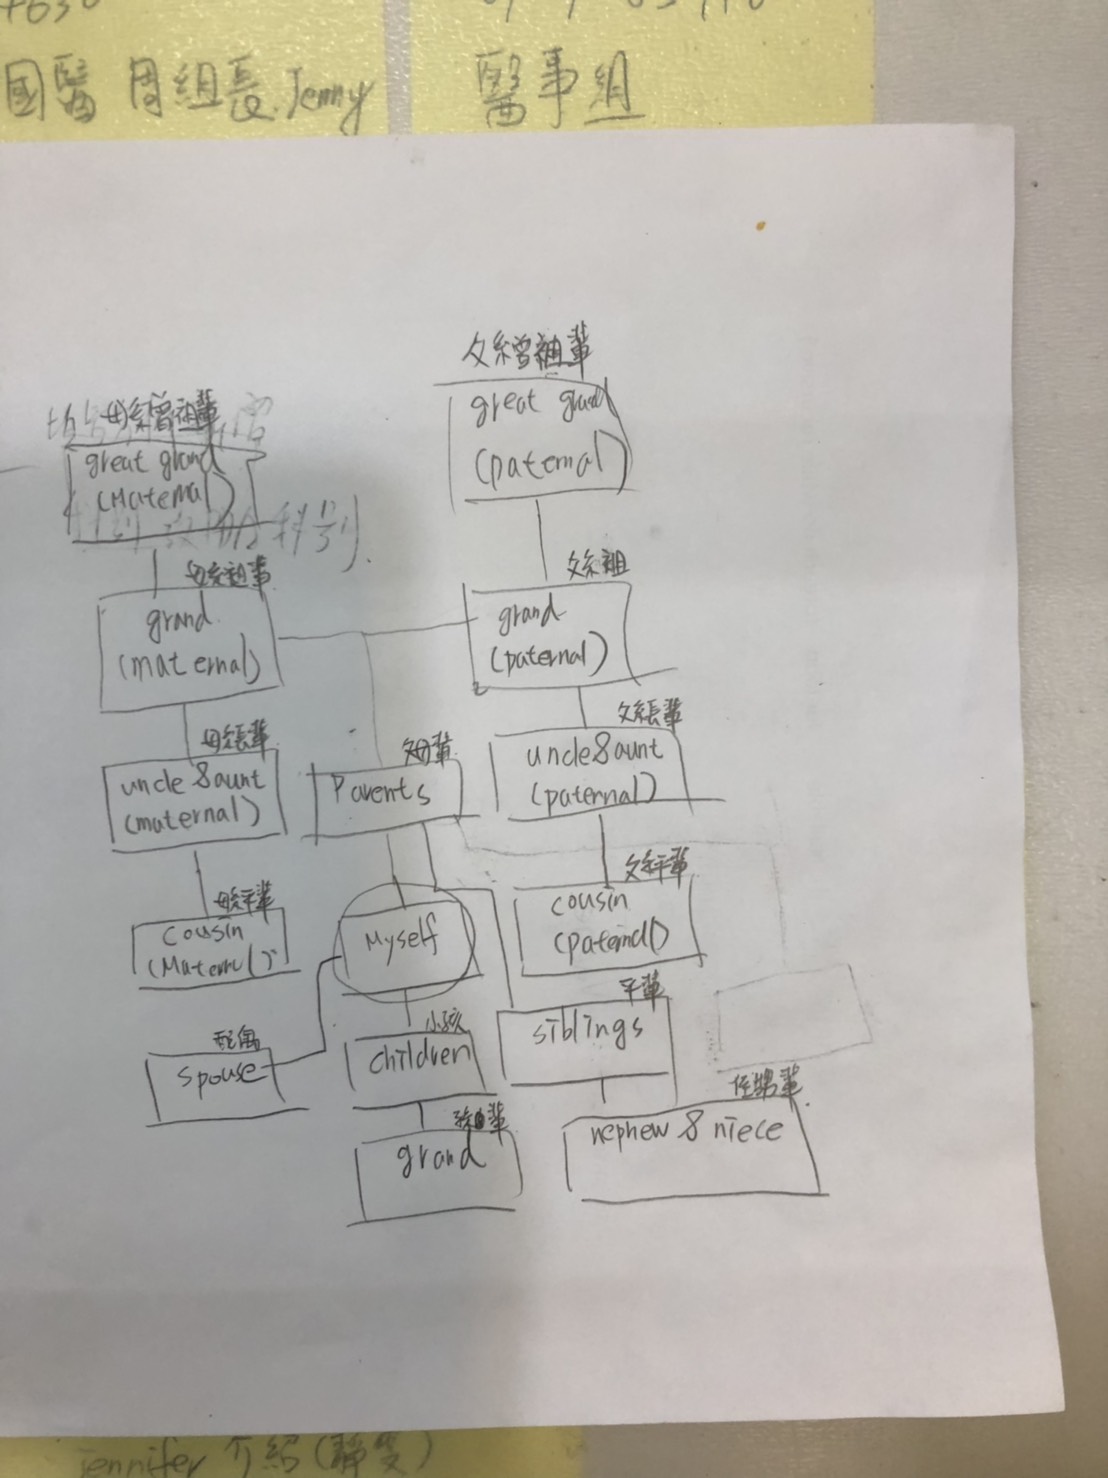 國醫 周組長 Jenny
醫事組
父系曾祖輩
great grand
(paternal)
母系曾祖輩
great grand
(Maternal)
科別
母系祖輩
grand
(maternal)
父系祖
grand
(paternal)
母系長輩
uncle & aunt
(maternal)
父母輩
Parents
父系長輩
uncle & aunt
(paternal)
母系平輩
cousin
(Maternal)
Myself
父系平輩
cousin
(paternal)
配偶
spouse
小孩
children
平輩
siblings
孫輩
grand
侄甥輩
nephew & niece
jennifer 介紹(靜雯)